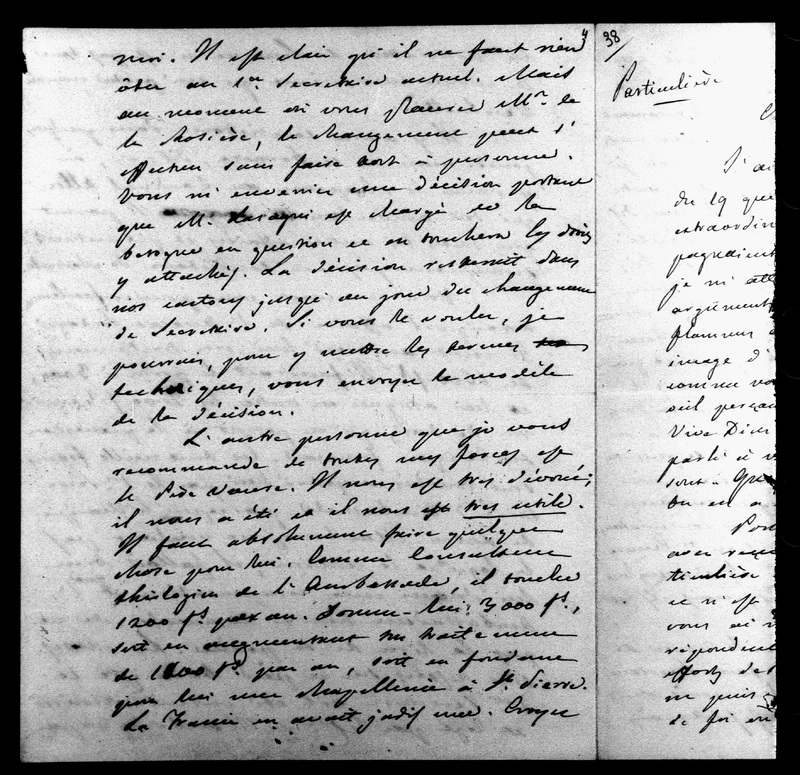 moi. Il est clair qu'il ne faut rien
ôter au 1er Secrétaire actuel. Mais
au moment où vous placerez Mr. de
la Rosière, le changement peut s'
effectuer sans faire tort à personne.
Vous m'enverriez une décision portant
que Mr. est chargé de la
besogne en question et en touchera les droits
y attachés. La décision resterait dans
nos cartons jusqu'au jour du changement
de Secrétaire. Si vous le voulez, je
pourrais, pour y mettre les termes
techniques, vous envoyer le modèle
de la décision.
L'autre personne que je vous
recommande de toutes mes forces est
le Père Vaures. Il nous est très dévoué;
il nous a été et il nous est très utile.
Il faut absolument faire quelque
chose pour lui. Comme Consulteur
théologien de l'Ambassade, il touche
1200 fs par an. Donnez-lui 3000 fs,
soit en augmentant son traitement
de 1800 fs par an, soit en fondant
pour lui une Chapellenie à St. Pierre.
La France en avait jadis une. Croyez
4
38
Particulière
J'ai
du 19 que
extraordin
pagnaient
je m'att
arguments
flammes d
image d'
comme vo
œil perçan
Vive Dieu
parlé à v
sont à
tu en a
Pou
avec
ticulière
ce n'est
vous ai
répondent
efforts des
ne puis
de foi en